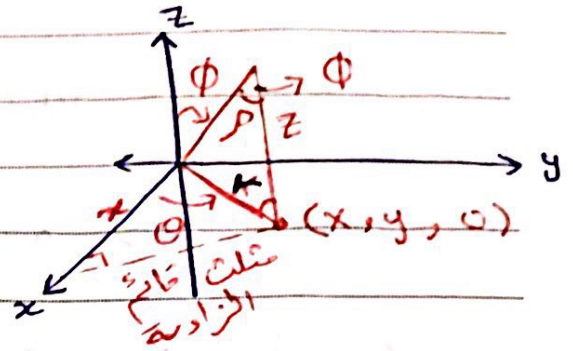 z
ϕ
ϕ
ρ
z
y
r
x
θ
(x, y, 0)
x
مثلث قائم
الزاوية